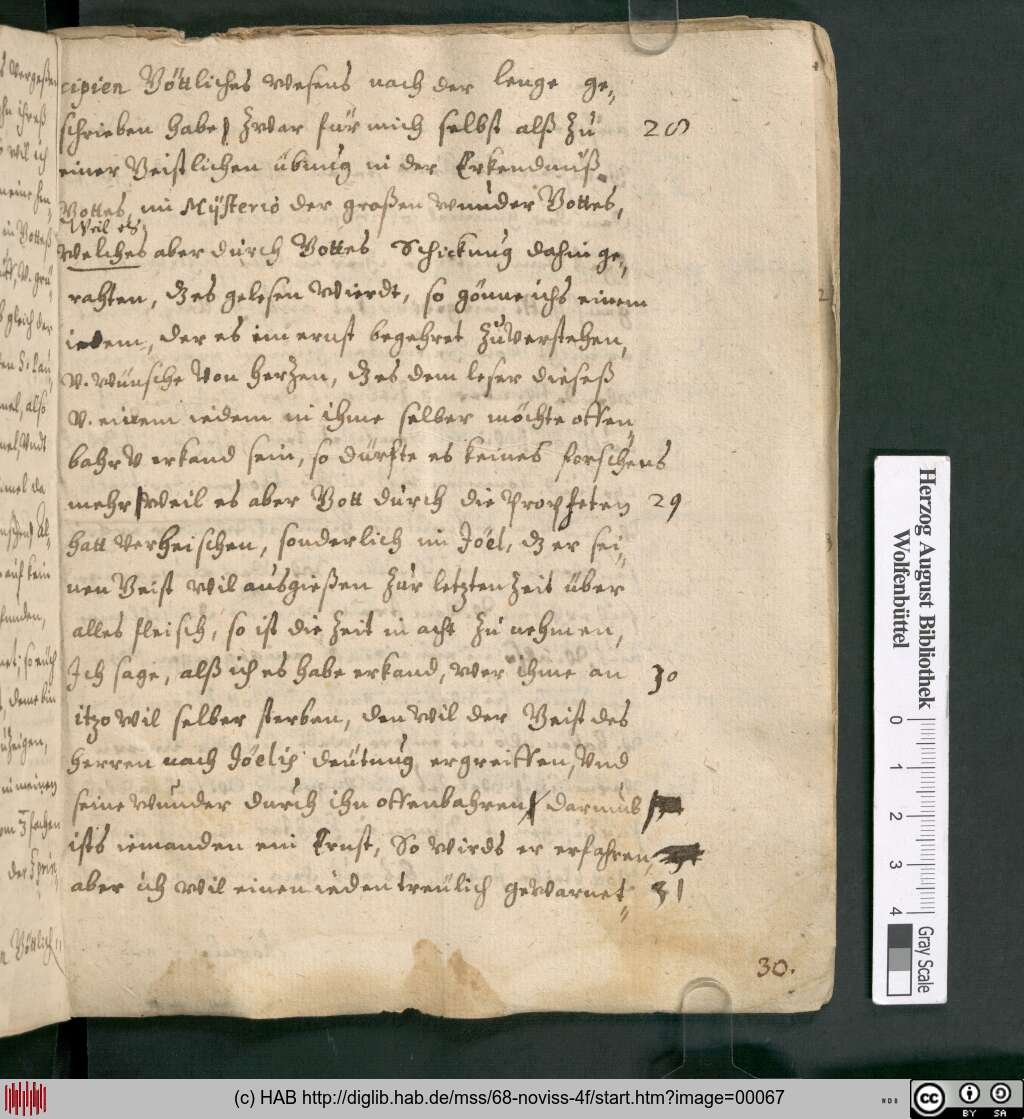 cipien Göttliches wesens nach der lenge ge„
schrieben habe/ Zwar für mich selbst alß Zu 28
einer Geistlichen übung in der Erkendnuß
Gottes, im Mÿsterio der großen wunder Gottes,
Weil es
welches aber durch Gottes Schickung dahin ge„
rahten, dz es gelesen wierdt, so gönne ichs einem
iedem, der es im ernst begehret Zu verstehen,
v. wünsche von herzen, dz es dem leser dieseß
v. einem iedem in ihme selber möchte offen„
bahr v erkand sein, so dürfte es keines forschens
mehr/ weil es aber Gott durch die Propheten 29
hatt verheischen, sonderlich im Jöel, dz er sei„
nen Geist wil ausgießen Zur letzten Zeit über
alles fleisch, so ist die Zeit in acht Zu nehmen,
Ich sage, alß ich es habe erkand, wer ihme an 30
itzo wil selber sterben, den wil der Geist des
Herren nach Jöelis deütung ergreiffen, Vnd
seine wunder durch ihn offenbahren/ darumb
ists iemanden ein Ernst, So wirds er erfahren,
aber ich wil einen ieden treülich gewarnet„ 31
30.
Herzog August Bibliothek
Wolfenbüttel
0 1 2 3 4
Gray Scale
(c) HAB http://diglib.hab.de/mss/68-noviss-4f/start.htm?image=00067
cc BY SA